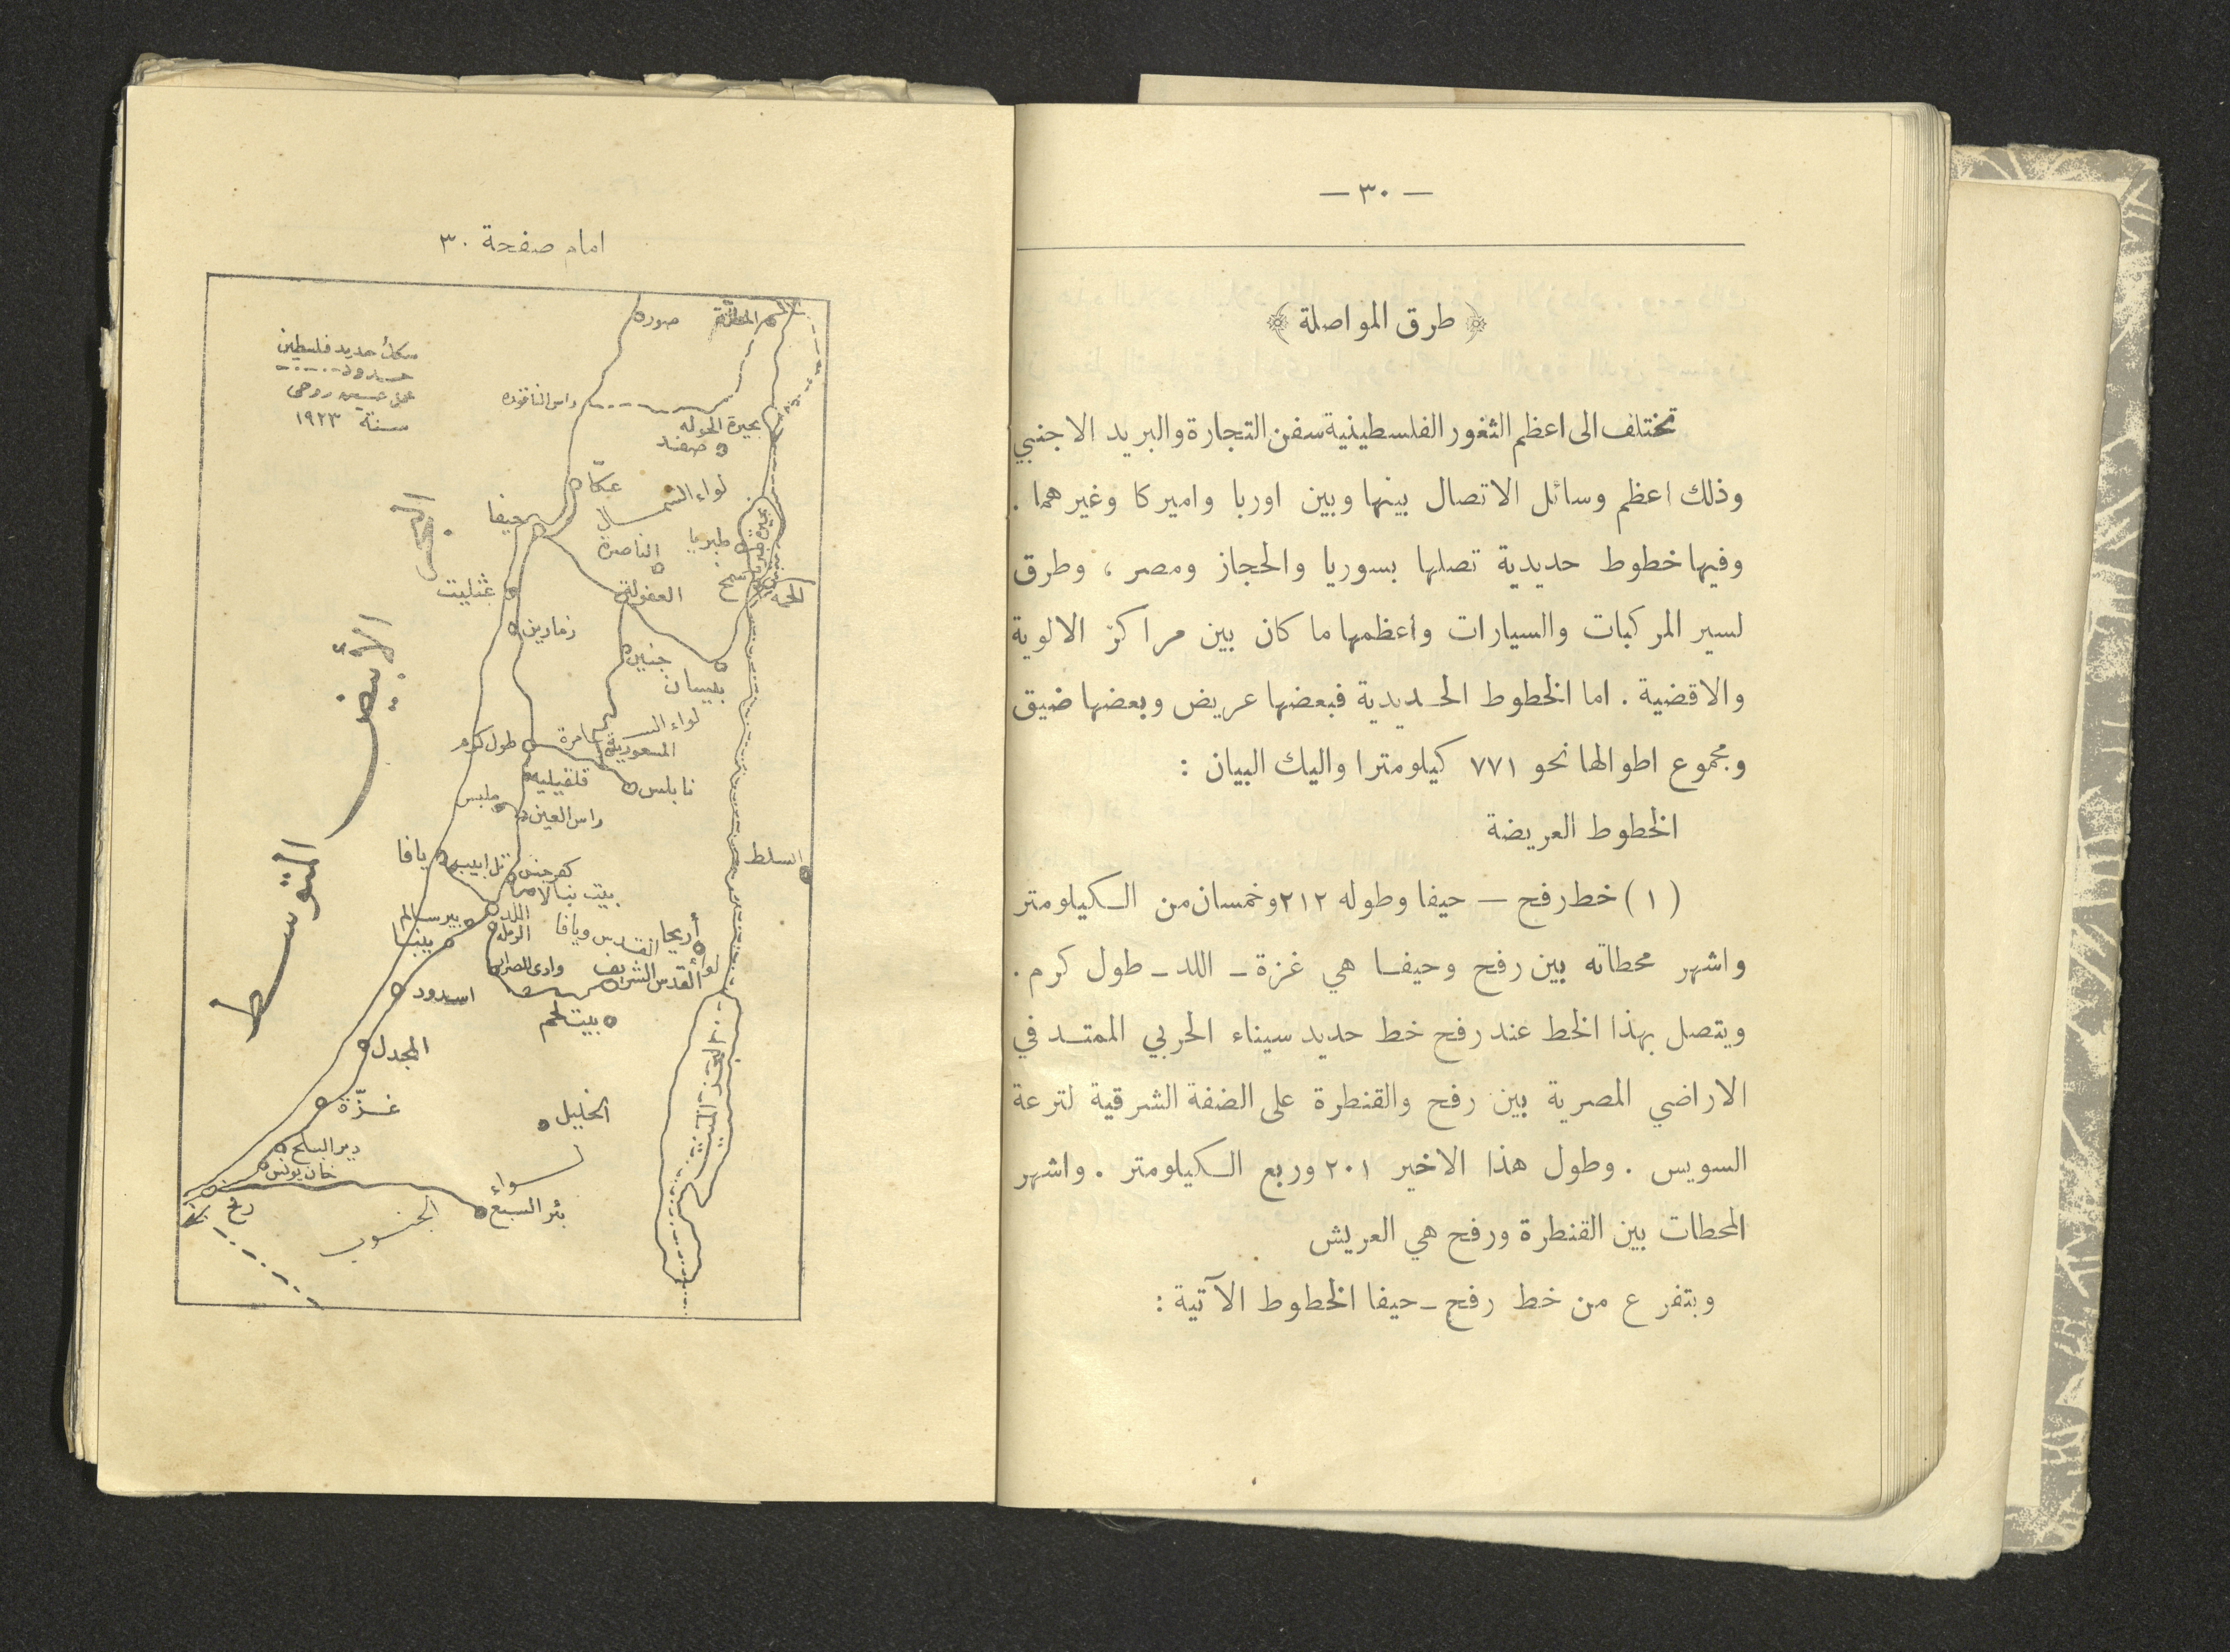 — ٣٠ —
﴿ طرق المواصلة ﴾
تختلف الى اعظم الثغور الفلسطينية سفن التجارة والبريد الاجنبي
وذلك اعظم وسائل الاتصال بينها وبين اوربا واميركا وغيرهما .
وفيها خطوط حديدية تصلها بسوريا والحجاز ومصر ، وطرق
لسير المركبات والسيارات واعظمها ما كان بين مراكز الالوية
والاقضية . اما الخطوط الحديدية فبعضها عريض وبعضها ضيق
ومجموع اطوالها نحو ٧٧١ كيلومترا واليك البيان :
الخطوط العريضة
( ١ ) خط رفح — حيفا وطوله ٢١٢ وخمسان من الكيلومتر
واشهر محطاته بين رفح وحيفا هي غزة - اللد - طول كرم .
ويتصل بهذا الخط عند رفح خط حديد سيناء الحربي الممتد في
الاراضي المصرية بين رفح والقنطرة على الضفة الشرقية لترعة
السويس . وطول هذا الاخير ٢٠١ وربع الكيلومتر . واشهر
المحطات بين القنطرة ورفح هي العريش
ويتفرع من خط رفح - حيفا الخطوط الآتية :
امام صفحة ٣٠
سكك حديد فلسطين
حدود
عمل حسين روحي
سنة ١٩٢٣
صور
المطلة
راس الناقوره
بحيرة الحوله
صفد
عكّا
لواء الشمال
حيفا
الناصرة
طبريا
بحيرة طبريا
سمخ
الحمه
العفولة
عثليت
زمارين
جنين
بيسان
لواء السامرة
المسعودية
طول كرم
قلقيليه
نابلس
ملبس
راس العين
السلط
يافا
تل ابيب
كفرجنس
بيت نبالا
اللد
الرمله
بير سالم
يبنا
أريحا
القدس ويافا
لواء
القدس الشريف
وادي الصرار
اسدود
بيت لحم
المجدل
البحر الميت
غزّة
الخليل
دير البلح
خان يونس
رفح
لواء
بئر السبع
الجنوب
البحر
الأبيض
المتوسط